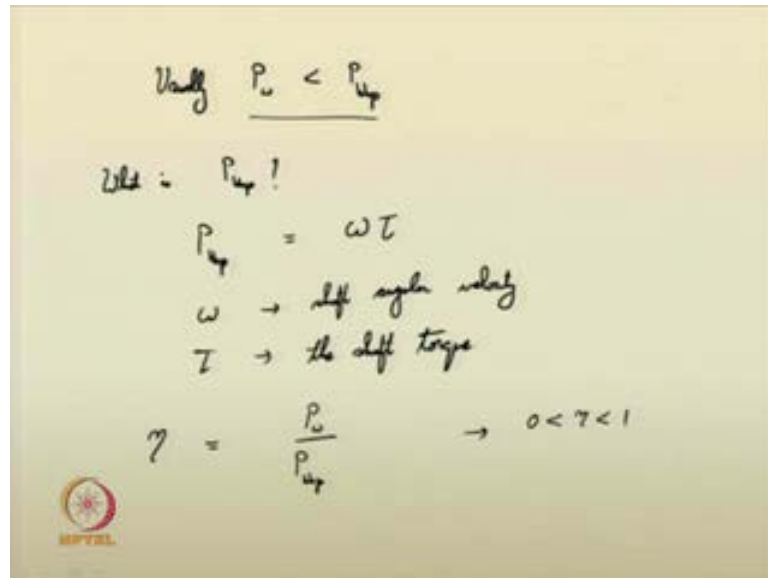 Usually P_w < P_bhp
What is P_bhp ?
P_bhp = ωτ
ω → shaft angular velocity
τ → the shaft torque
η = P_w / P_bhp → 0 < η < 1
NPTEL